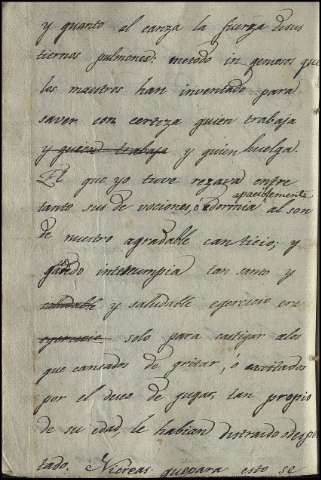 y quanto al canza la fuerza desus
tiernos pulmones: metodo in genioso que
los maestros han inventado para
saver con certeza quien trabaja
y quien trabaja y quien huelga.
El que yo tuve rezaza entre
apaciblemente
tanto sus de vociones, ó dormia al son
de nuestro agradable can ticio; y
quando interrumpia tan santo y
saludable y saludable egercicio era
egercicio solo para castigar alos
que cansados de gritar, ó excitados
por el deseo de jugar, tan propio
de su edad, le habian distraido odesper
tado. Niereas quepara esto se